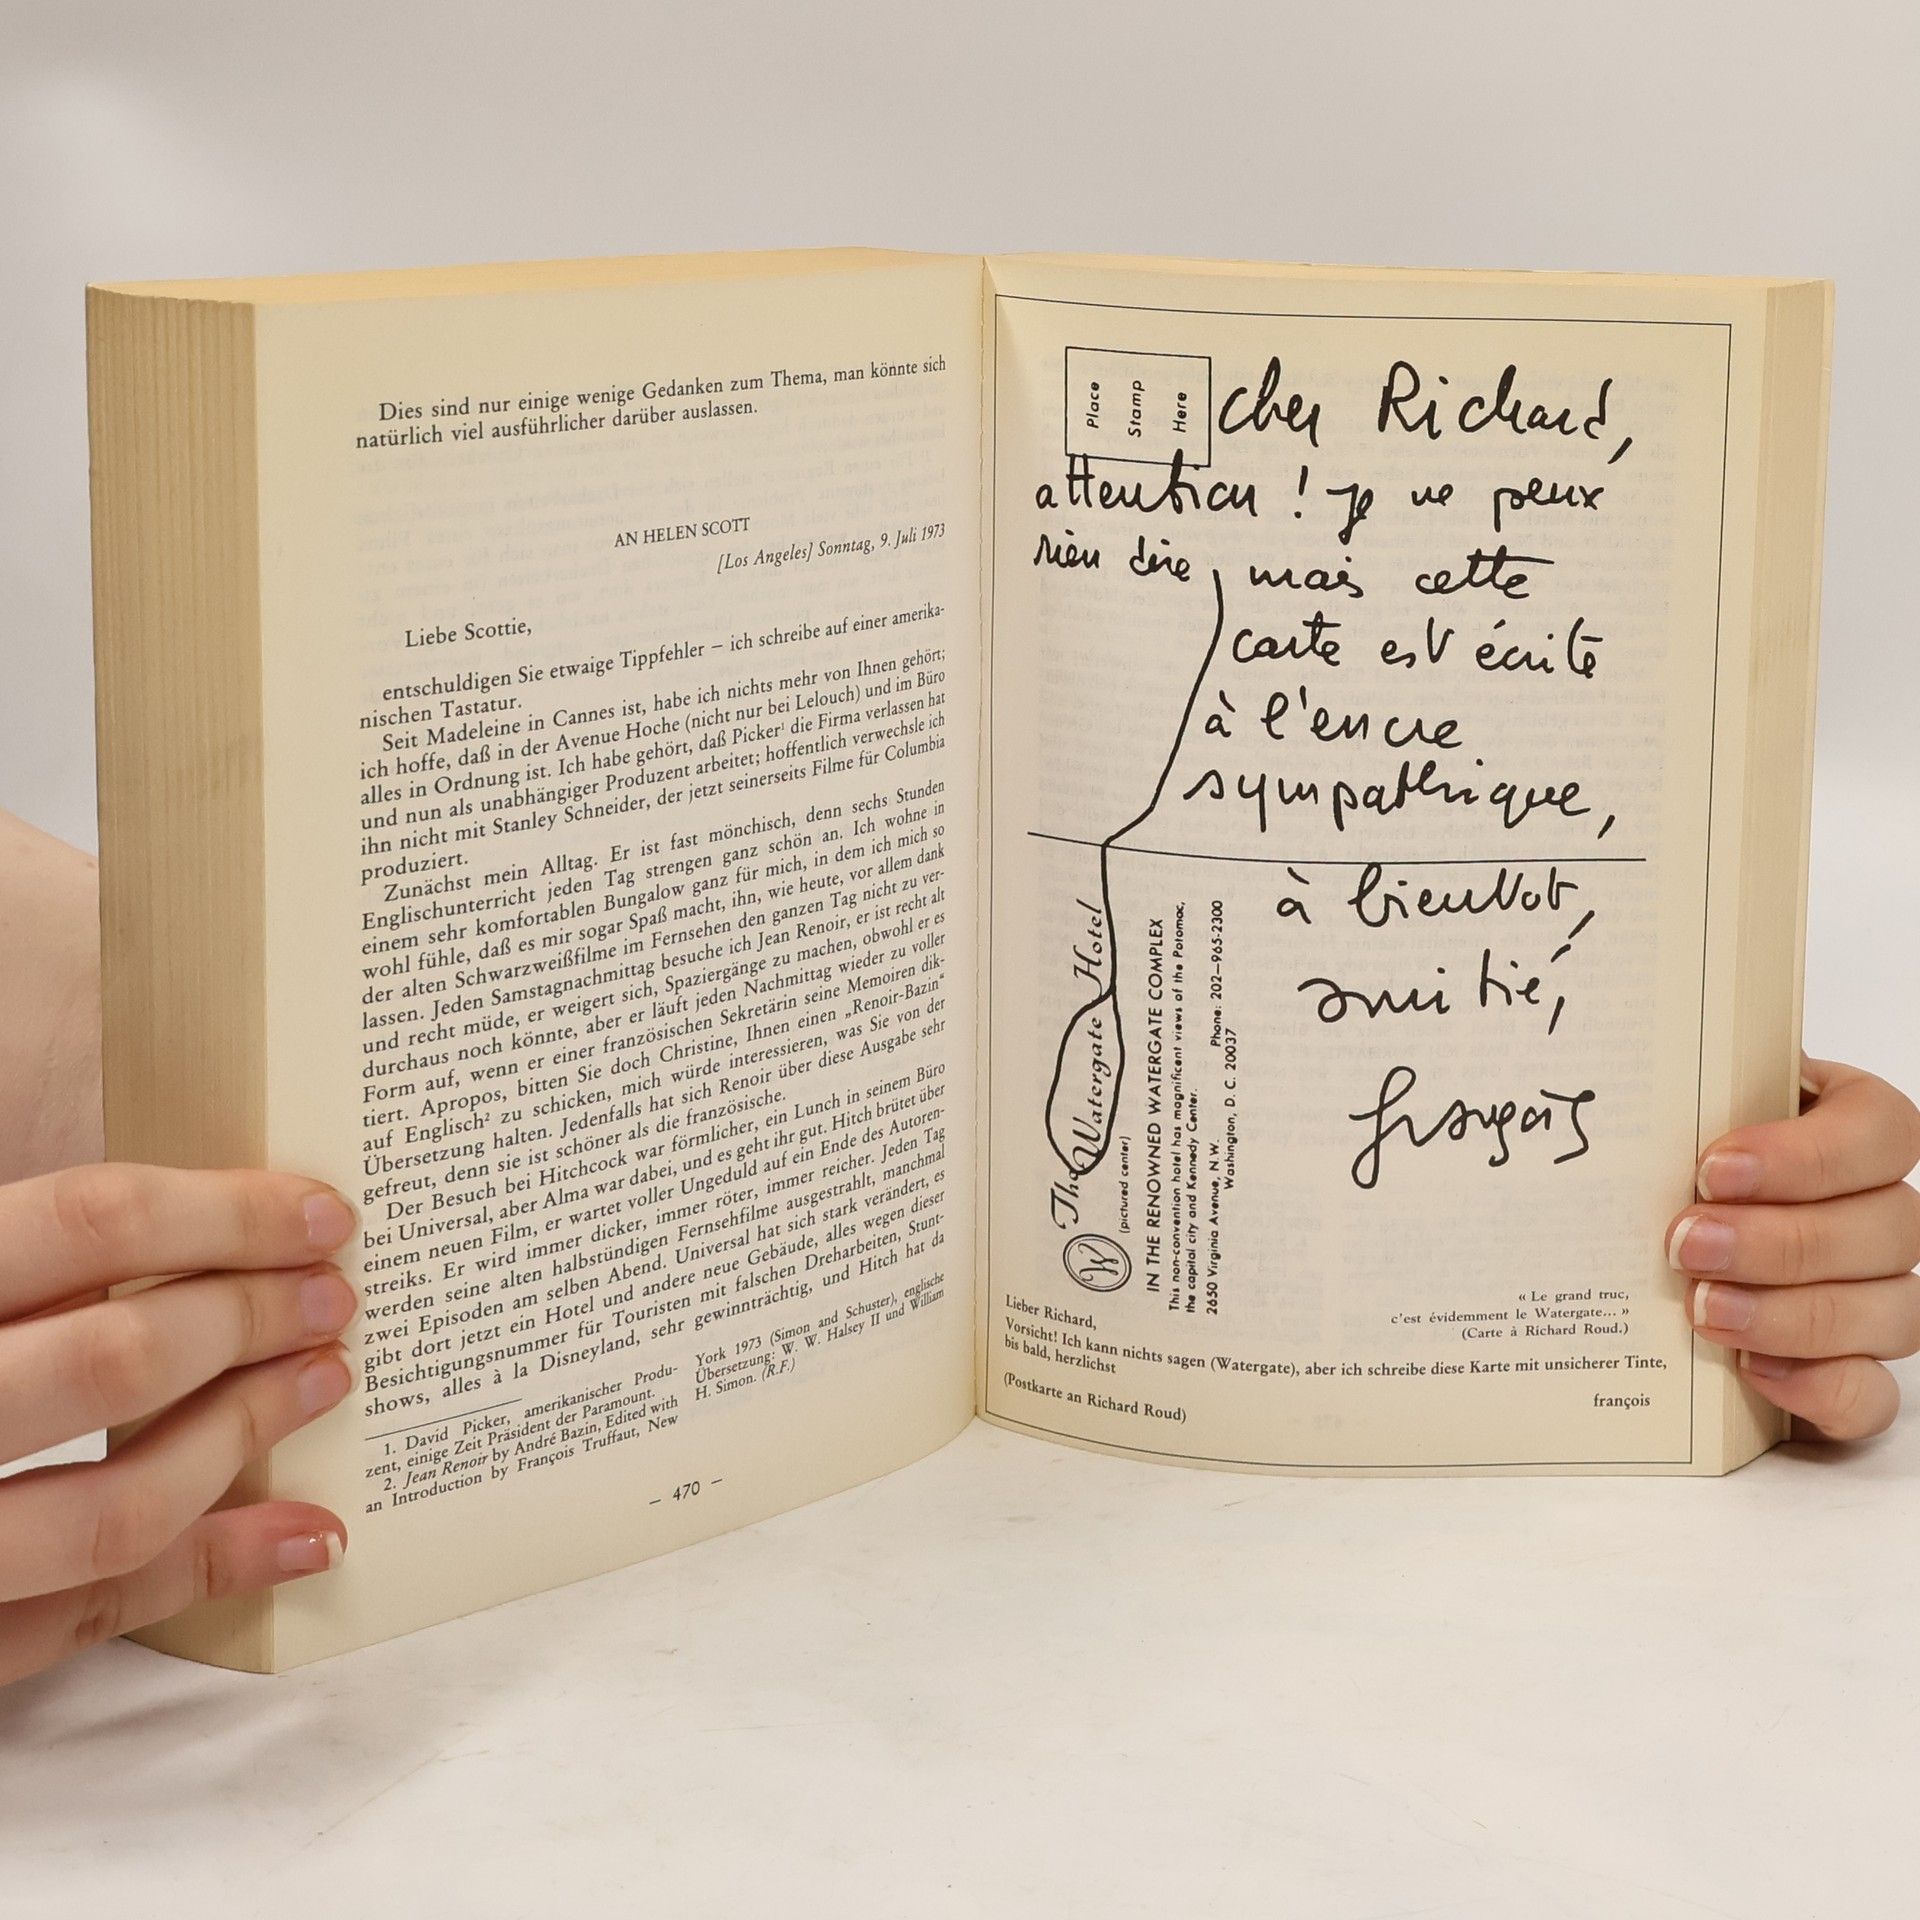 Dies sind nur einige wenige Gedanken zum Thema, man könnte sich
natürlich viel ausführlicher darüber auslassen.
AN HELEN SCOTT
[Los Angeles] Sonntag, 9. Juli 1973
Liebe Scottie,
entschuldigen Sie etwaige Tippfehler – ich schreibe auf einer amerika-
nischen Tastatur.
Seit Madeleine in Cannes ist, habe ich nichts mehr von Ihnen gehört;
ich hoffe, daß in der Avenue Hoche (nicht nur bei Lelouch) und im Büro
alles in Ordnung ist. Ich habe gehört, daß Picker¹ die Firma verlassen hat
und nun als unabhängiger Produzent arbeitet; hoffentlich verwechsle ich
ihn nicht mit Stanley Schneider, der jetzt seinerseits Filme für Columbia
produziert.
Zunächst mein Alltag. Er ist fast mönchisch, denn sechs Stunden
Englischunterricht jeden Tag strengen ganz schön an. Ich wohne in
einem sehr komfortablen Bungalow ganz für mich, in dem ich mich so
wohl fühle, daß es mir sogar Spaß macht, ihn, wie heute, vor allem dank
der alten Schwarzweißfilme im Fernsehen den ganzen Tag nicht zu ver-
lassen. Jeden Samstagnachmittag besuche ich Jean Renoir, er ist recht alt
und recht müde, er weigert sich, Spaziergänge zu machen, obwohl er es
durchaus noch könnte, aber er läuft jeden Nachmittag wieder zu voller
Form auf, wenn er einer französischen Sekretärin seine Memoiren dik-
tiert. Apropos, bitten Sie doch Christine, Ihnen einen „Renoir-Bazin“
auf Englisch² zu schicken, mich würde interessieren, was Sie von der
Übersetzung halten. Jedenfalls hat sich Renoir über diese Ausgabe sehr
gefreut, denn sie ist schöner als die französische.
Der Besuch bei Hitchcock war förmlicher, ein Lunch in seinem Büro
bei Universal, aber Alma war dabei, und es geht ihr gut. Hitch brütet über
einem neuen Film, er wartet voller Ungeduld auf ein Ende des Autoren-
streiks. Er wird immer dicker, immer röter, immer reicher. Jeden Tag
werden seine alten halbstündigen Fernsehfilme ausgestrahlt, manchmal
zwei Episoden am selben Abend. Universal hat sich stark verändert, es
gibt dort jetzt ein Hotel und andere neue Gebäude, alles wegen dieser
Besichtigungsnummer für Touristen mit falschen Dreharbeiten, Stunt-
shows, alles à la Disneyland, sehr gewinnträchtig, und Hitch hat da
1. David Picker, amerikanischer Produ-
zent, einige Zeit Präsident der Paramount.
2. Jean Renoir by André Bazin, Edited with
an Introduction by François Truffaut, New
York 1973 (Simon and Schuster), englische
Übersetzung: W. W. Halsey II und William
H. Simon. (R.F.)
– 470 –
Place
Stamp
Here
Cher Richard,
attention ! je ne peux
rien dire, mais cette
carte est écrite
à l'encre
sympathique,
à bientôt,
amitié,
françois
The Watergate Hotel
(pictured center)
IN THE RENOWNED WATERGATE COMPLEX
This non-convention hotel has magnificent views of the Potomac,
the capital city and Kennedy Center.
2650 Virginia Avenue, N.W. Phone: 202–965-2300
Washington, D. C. 20037
« Le grand truc,
c'est évidemment le Watergate... »
(Carte à Richard Roud.)
Lieber Richard,
Vorsicht! Ich kann nichts sagen (Watergate), aber ich schreibe diese Karte mit unsicherer Tinte,
bis bald, herzlichst
françois
(Postkarte an Richard Roud)